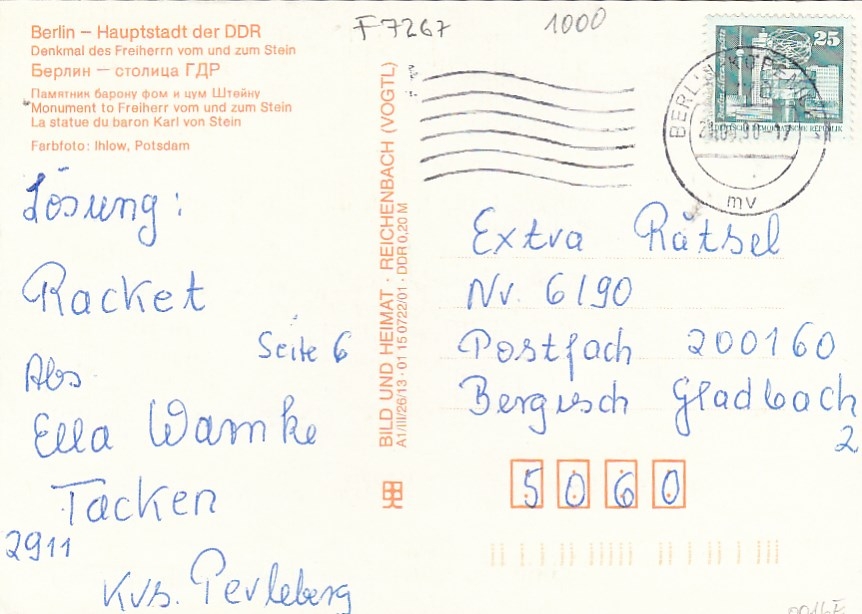 Berlin — Hauptstadt der DDR
Denkmal des Freiherrn vom und zum Stein
Берлин — столица ГДР
Памятник барону фом и цум Штейну
Monument to Freiherr vom und zum Stein
La statue du baron Karl von Stein
Farbfoto: Ihlow, Potsdam
F 7267
1000
25
DEUTSCHE DEMOKRATISCHE REPUBLIK
BERLIN KÖPENICK
mv
Lösung:
Racket
Seite 6
Abs.
Ella Warnke
Tacken
2911
Krs. Perleberg
BILD UND HEIMAT · REICHENBACH (VOGTL)
A1/III/26/13 · 01 15 0722/01 · DDR 0,20 M
Extra Rätsel
Nr. 6/90
Postfach 200160
Bergisch Gladbach
2
5060